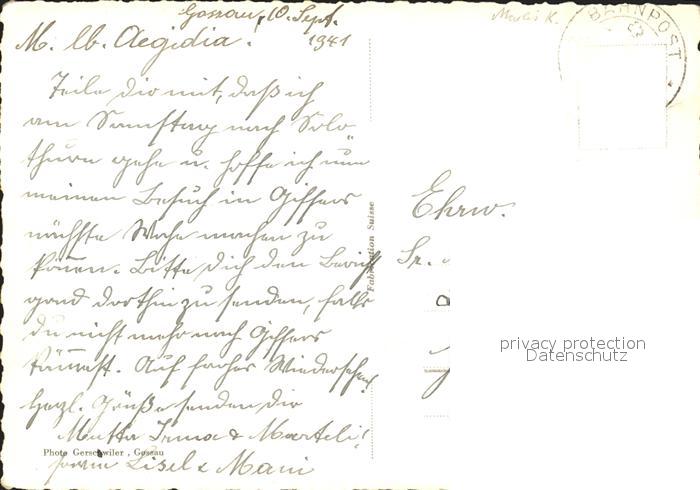 Gossau, 10. Sept.
1941
M. lb. Aegidia!
Teile dir mit, daß ich
am Samstag nach Solo=
thurn gehe u. hoffe ich nun
meinen Besuch in Giffers
nächste Woche machen zu
können. Bitte Dich den Bericht
dorthin zu senden, falls
du nicht mehr nach Giffers
kämest. Auf frohes Wiedersehen!
Herzl. Grüße senden dir
Mutter Irma & Marteli!
Lisel & Mani
Photo Gerschwiler, Gossau
Fabrication Suisse
Marlis K.
BAHNPOST
Ehrw.
Sr.
privacy protection
Datenschutz